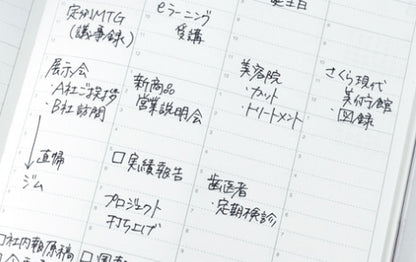 定例MTG
(議事録)
eラーニング
受講
生日
展示会
・A社ご挨拶
・B社訪問
新商品
営業説明会
美容院
・カット
・トリートメント
さくら現代
美術館
・図録
直帰
ジム
□実績報告
プロジェクト
打ち上げ
歯医者
・定期検診
□社内報原稿